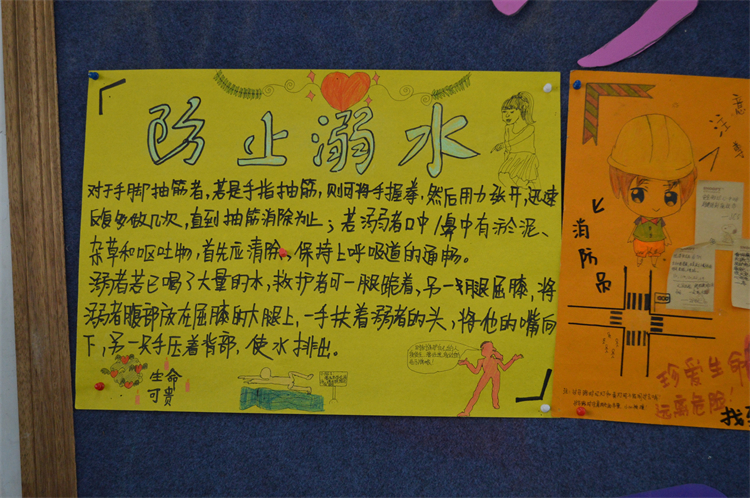 防止溺水
对于手脚抽筋者,若是手指抽筋,则可将手握拳,然后用力张开,迅速
反复多做几次,直到抽筋消除为止;若溺弱者口中/鼻中有淤泥、
杂草和呕吐物,首先应清除,保持上呼吸道的通畅。
溺者若已喝了大量的水,救护者可一腿跪着,另一只腿屈膝,将
溺者腹部放在屈膝的大腿上,一手扶着溺者的头,将他的嘴向
下,另一只手压着背部,使水排出。
生命
可贵
注意
消防员
珍爱生命
远离危险!